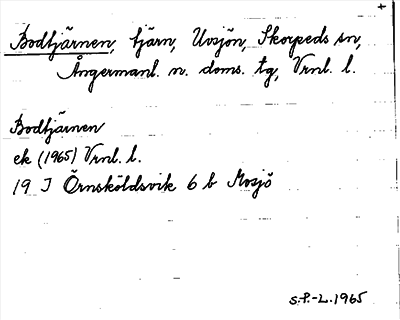 +
Bodtjärnen, tjärn, Uvsjön, Skorpeds sn,
Ångermanl. n. doms. tg, Vrnl. l.
Bodtjärnen
ek (1965) Vrnl. l.
19 J Örnsköldsvik 6 b Mosjö
S.P.-L. 1965